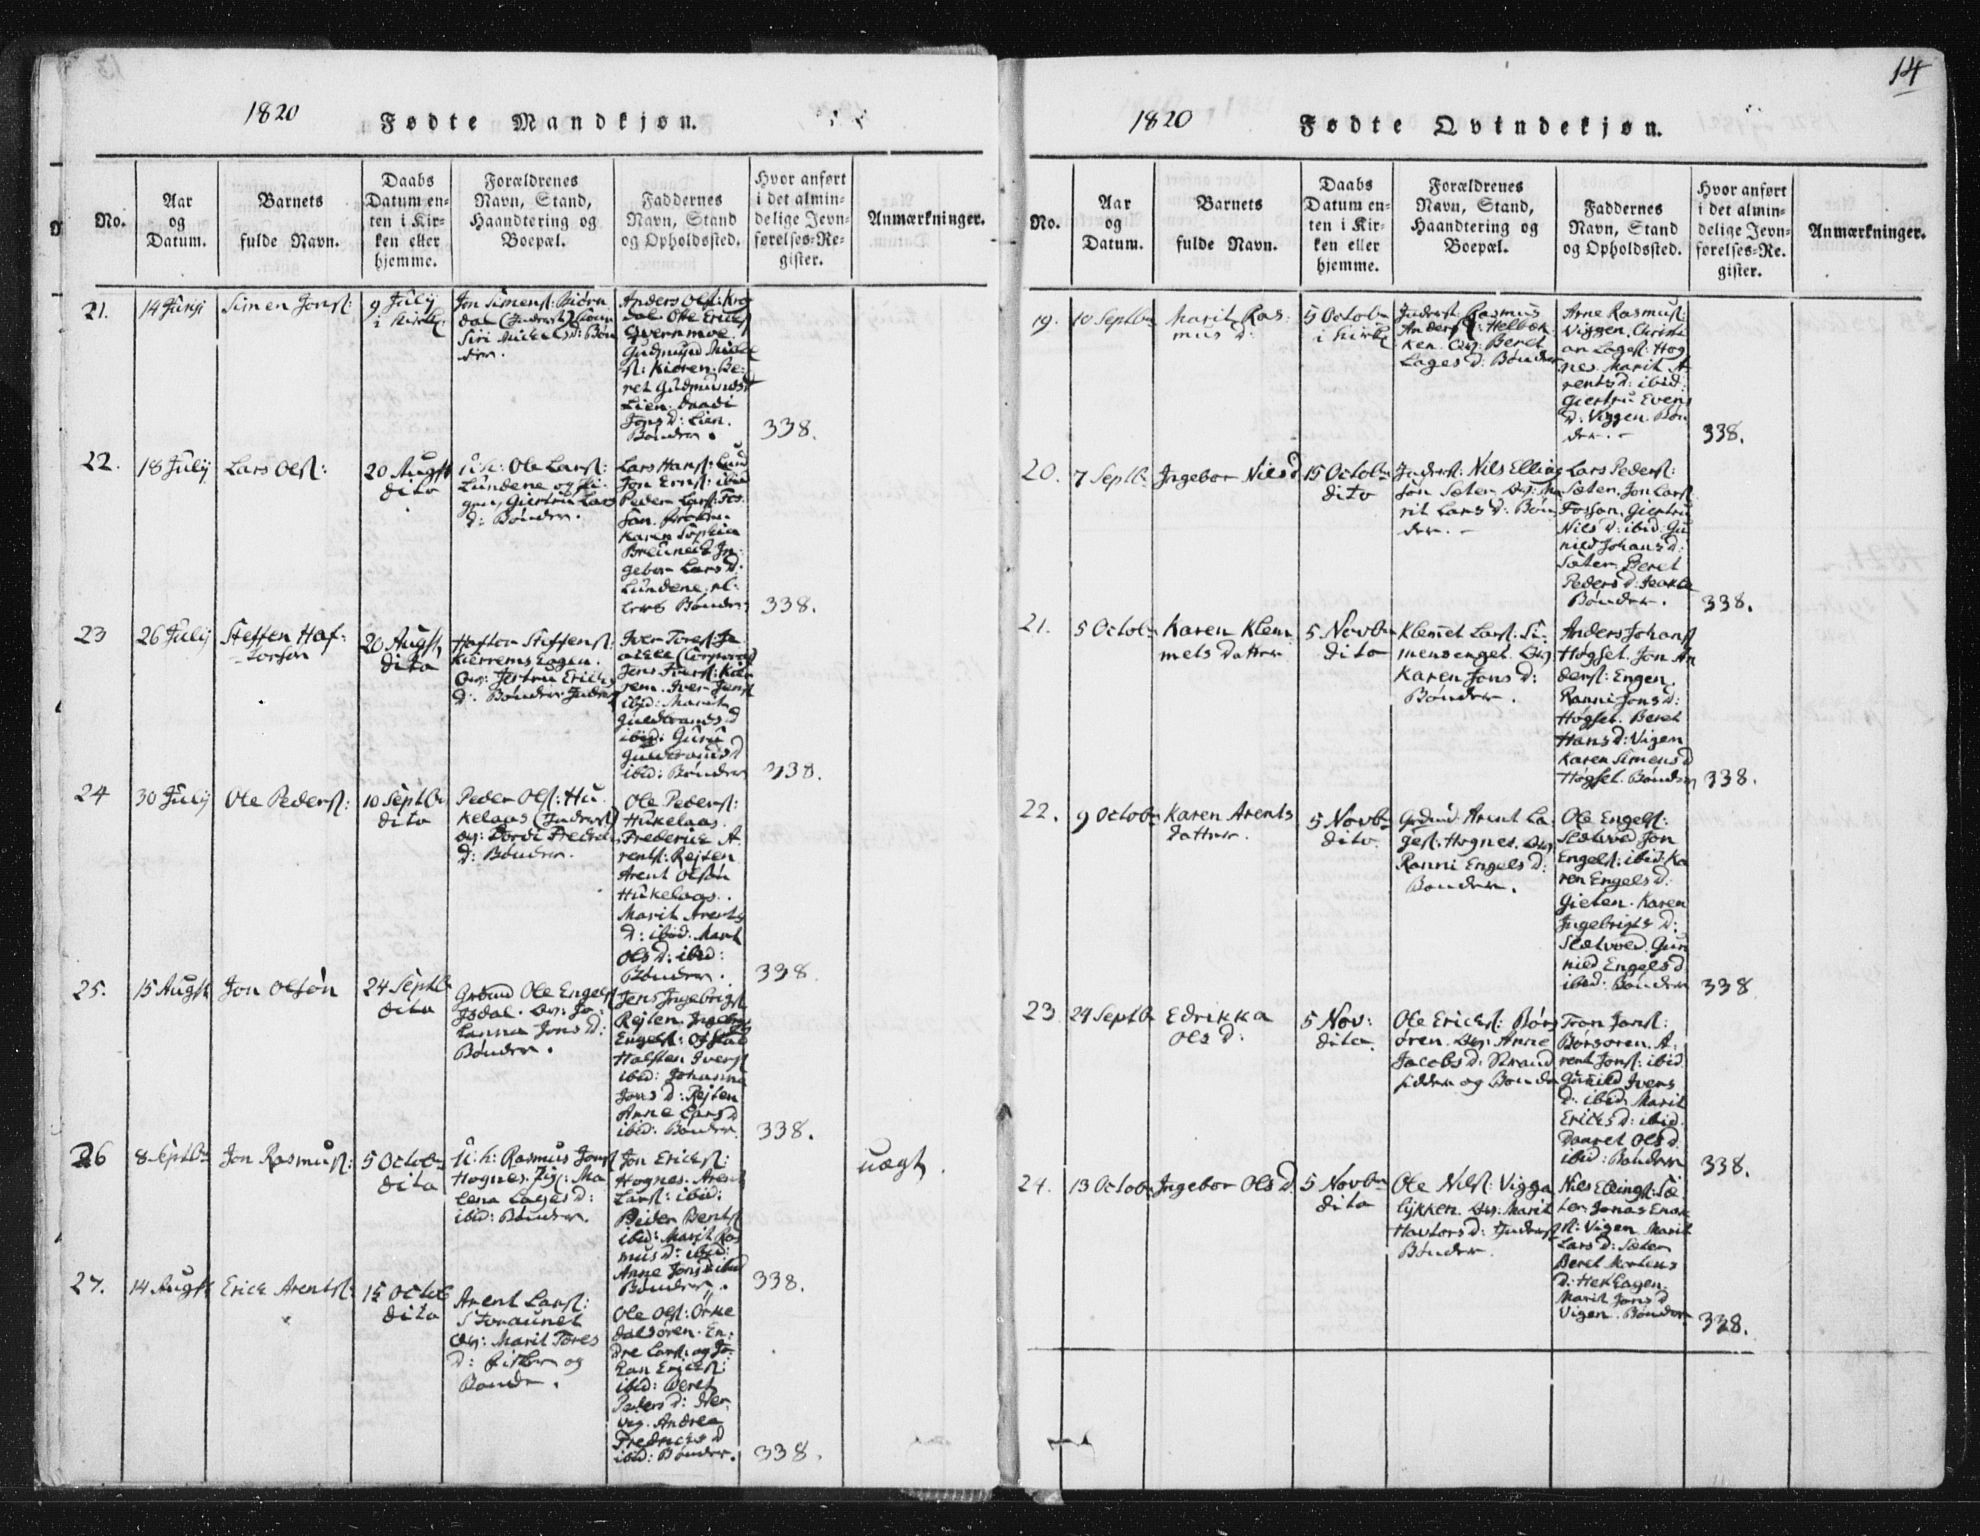 14
1820
Fødte Mandkjøn.
No.
Aar
og
Datum.
Barnets
fulde Navn.
Daabs
Datum en-
ten i Kir-
ken eller
hjemme.
Forældrenes
Navn, Stand,
Haandtering og
Boepæl.
Faddernes
Navn, Stand
og Opholdssted.
Hvor anført
i det almin-
delige Jevn-
førelses-Re-
gister.
Anmærkninger.
21.
14 Junji
Simen Jonsſ:
9 July
i Kirk
Jon Simensſ: Biørn
dal
Siri
Anders Olsſ: Krog
dal Ole Ericksſ
Gudmund
Beret Gudmundsd
Lien.
Jonsd: Lien.
Bønder.
338.
22.
18 July
Lars Olsſ:
20 Augst
dito
Ole Larsſ:
Lundene og
Giertru Lars
d: Bønder.
Lars Hansſ: Lund
Jon Ernsſ: ibid
Peder Larsſ: Fos
San.
Karen Sophia
In-
gebor Larsd:
Lundene
Bønder
338.
23
26 July
Steffen Haf-
torsøn
20 Augst,
dito
Haftor Steffensſ:
Kierremseagen.
Qv: Jertru Ericks
d: Bønder Inderst
Iver Toresſ:
Jens Iversſ: Kier
rem. Iver Jensſ
ibid: Marit
Guldbrandsd
ibid: Guru
Guldbrandsd
ibid: Bønder
338.
24
30 July
Ole Pedersſ:
10 Septbr
dito
Peder Olsſ: Hu
kelaas (Inderst)
Qv: Dordi Predrik
d: Bønder.
Ole Pedersſ:
Hukelaas.
Frederik A-
rentsſ: Rejten
Arent Olsøn
Hukelaas.
Marit Arents
d: ibid. Marit
Olsd: ibid:
Bønder.
338
25.
15 Augst
Jon Olsøn
24 Septbr
dito
Grdmd Ole Engelsſ
Isdal. Qv: Jo-
hanna Jonsd:
Bønder.
Jens Ingebrigtsſ
Rejten. Ingebr
Engelsſ:
Halsten Iversſ
ibid: Johanna
Jonsd: Rejten
Anne Larsd
ibid: Bønder.
338.
26
8 Septbr
Jon Rasmusſ:
5 Octobr
dito
U: h: Rasmus Jonsſ
Hognes. Pig: Ma
lena Lagesd:
ibid: Bønder.
Jon Ericksſ:
Hognes. Arent
Larsſ: ibid:
Peder Berntsſ
ibid: Marit Ras
musd: ibid:
Anne Jonsd ibid
Bønder.
338.
uægt.
27.
14 Augst
Erick Arentsſ:
15 Octob
dito
Arent Larsſ:
Storaunet
Qv: Marit Tores
d: Fisker og
Bonde.
Ole Olsſ: Orke
dalsøren. En-
dre Larsſ: og Jo-
han Ericksſ:
ibid: Beret
Pedersd:
Andrea
Fredricksd
ibid: Bønder.
338.
1820
Fødte Qvindekjøn.
No.
Aar
og
Datum.
Barnets
fulde Navn.
Daabs
Datum en-
ten i Kir-
ken eller
hjemme.
Forældrenes
Navn, Stand,
Haandtering og
Boepæl.
Faddernes
Navn, Stand
og Opholdssted.
Hvor anført
i det almin-
delige Jevn-
førelses-Re-
gister.
Anmærkninger.
19.
10 Septbr
Marit Ras-
mus d:
5 Octobr
i Kirk
Inderst Rasmus
Andersſ: Helbek-
ken. Qv: Beret
Lagesd: Bønder
Arne Rasmusſ:
Viggen. Christi
an Lagesſ: Hog
nes. Marit A-
rentsd: ibid:
Giertru Evens
d: Viggen. Bøn
der.
338.
20.
7 Septbr
Ingebor Nielsd
15 Octobr
dito
Inderst: Nils Elling
søn Sæter Qv: Ma
rit Larsd: Bøn
der.
Lars Pedersſ:
Sæter. Jon Larsſ
Fossan. Giertru
Nilsd: ibid. Gu
nild Johansd:
Sæter. Beret
Pedersd:
Bønder.
338.
21.
5 Octobr
Karen Klem
mets Datter
5 Novbr
dito
Klemet Larsſ: Si-
mensenget. Qv:
Karen Jonsd:
Bønder.
Anders Johansſ
Høgset. Jon An
dersſ: Engen.
Ranni Jonsd:
Høgset. Beret
Hansd: Vigen
Karen Simensd
Høgset. Bønder
338.
22.
9 Octobr
Karen Arents
Datter.
5 Novbr
dito.
Grdmd Arent La
gesſ: Hognes. Qv:
Ranni Engelsd:
Bønder.
Ole Engelsſ:
Sletvold Jon
Engelsſ: ibid. Ka
ren Engelsd:
Gieten. Karen
Ingebrigtsd:
Sletvold. Gur
nild Engelsd
ibid: Bønder
338
23
24 Septbr
Edrikka
Olsd:
5 Nov:
dito.
Ole Ericksſ: Børs
øren. Qv: Anne
Jacobsd: Strand
sidder og Bonde
Tron Jonsſ:
Børsøren. A-
rent Jonsſ: ibid
Gunild Ivers
d: ibid. Marit
Ericksd: ibid.
Daaret Olsd
ibid: Bønder
338.
24.
13 Octobr
Ingebor Olsd.
5 Novbr
dito
Ole Nilsſ: Vigga
lykken. Qv: Marit
Havtorsd: Inderst
Bønder.
Nils Ellingsſ: Sæ
ter. Jonas Enok
sſ: Vigen. Marit
Larsd: Sæter
Beret Mortens
d: Hekleagen.
Marit Jonsd
Vigen. Bønder
338.